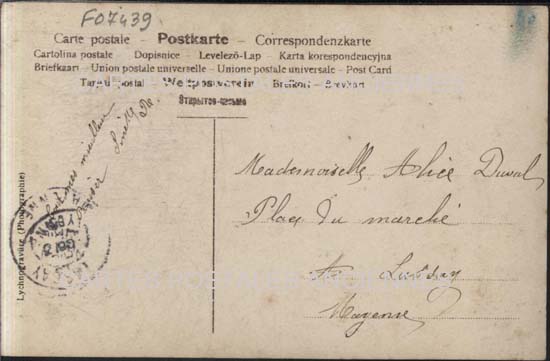 F07439
Carte postale – Postkarte – Correspondenzkarte
Cartolina postale – Dopisnice – Levelező-Lap – Karta korespondencyjna
Briefkaart – Union postale universelle – Unione postale universale – Post Card
postal – Weltpostverein – Brefkort – Brevkort
Открытое письмо
Lychnogravüre (Photographie)
mes meilleurs
Mademoiselle Alice Duval
Place du marché
à Lassay
Mayenne
LASSAY